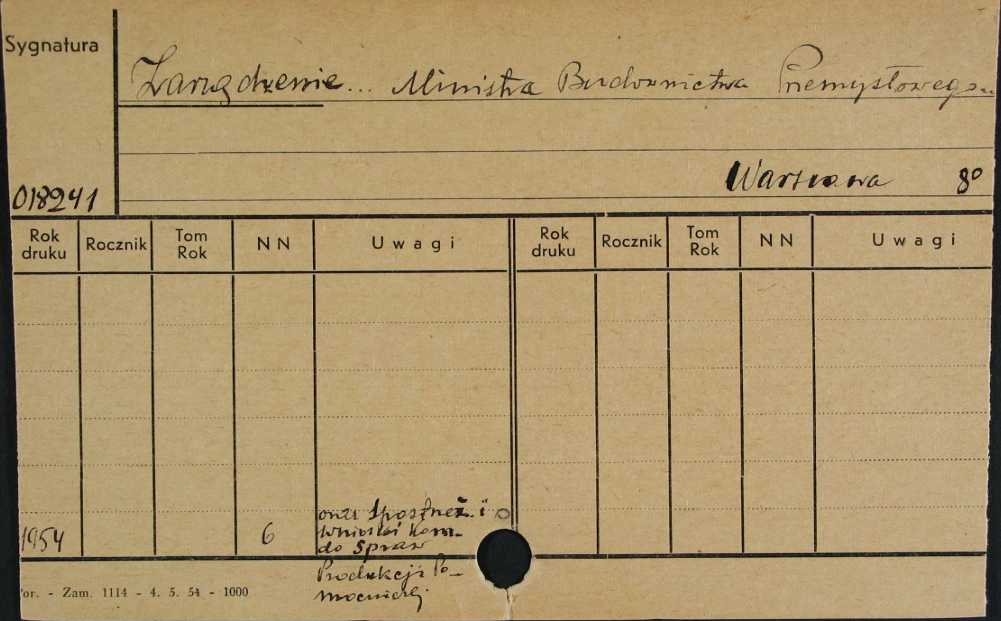 Sygnatura
Zarządzenie... Ministra Budownictwa Przemysłowego..
Warszawa 8°
018241
Rok druku Rocznik Tom Rok NN Uwagi Rok druku Rocznik Tom Rok NN Uwagi
oraz Spostrzeż. i
wnioski Kom.
1954 6 do Spraw
Produkcji Po-
mocniczej
or. - Zam. 1114 - 4. 5. 54 - 1000